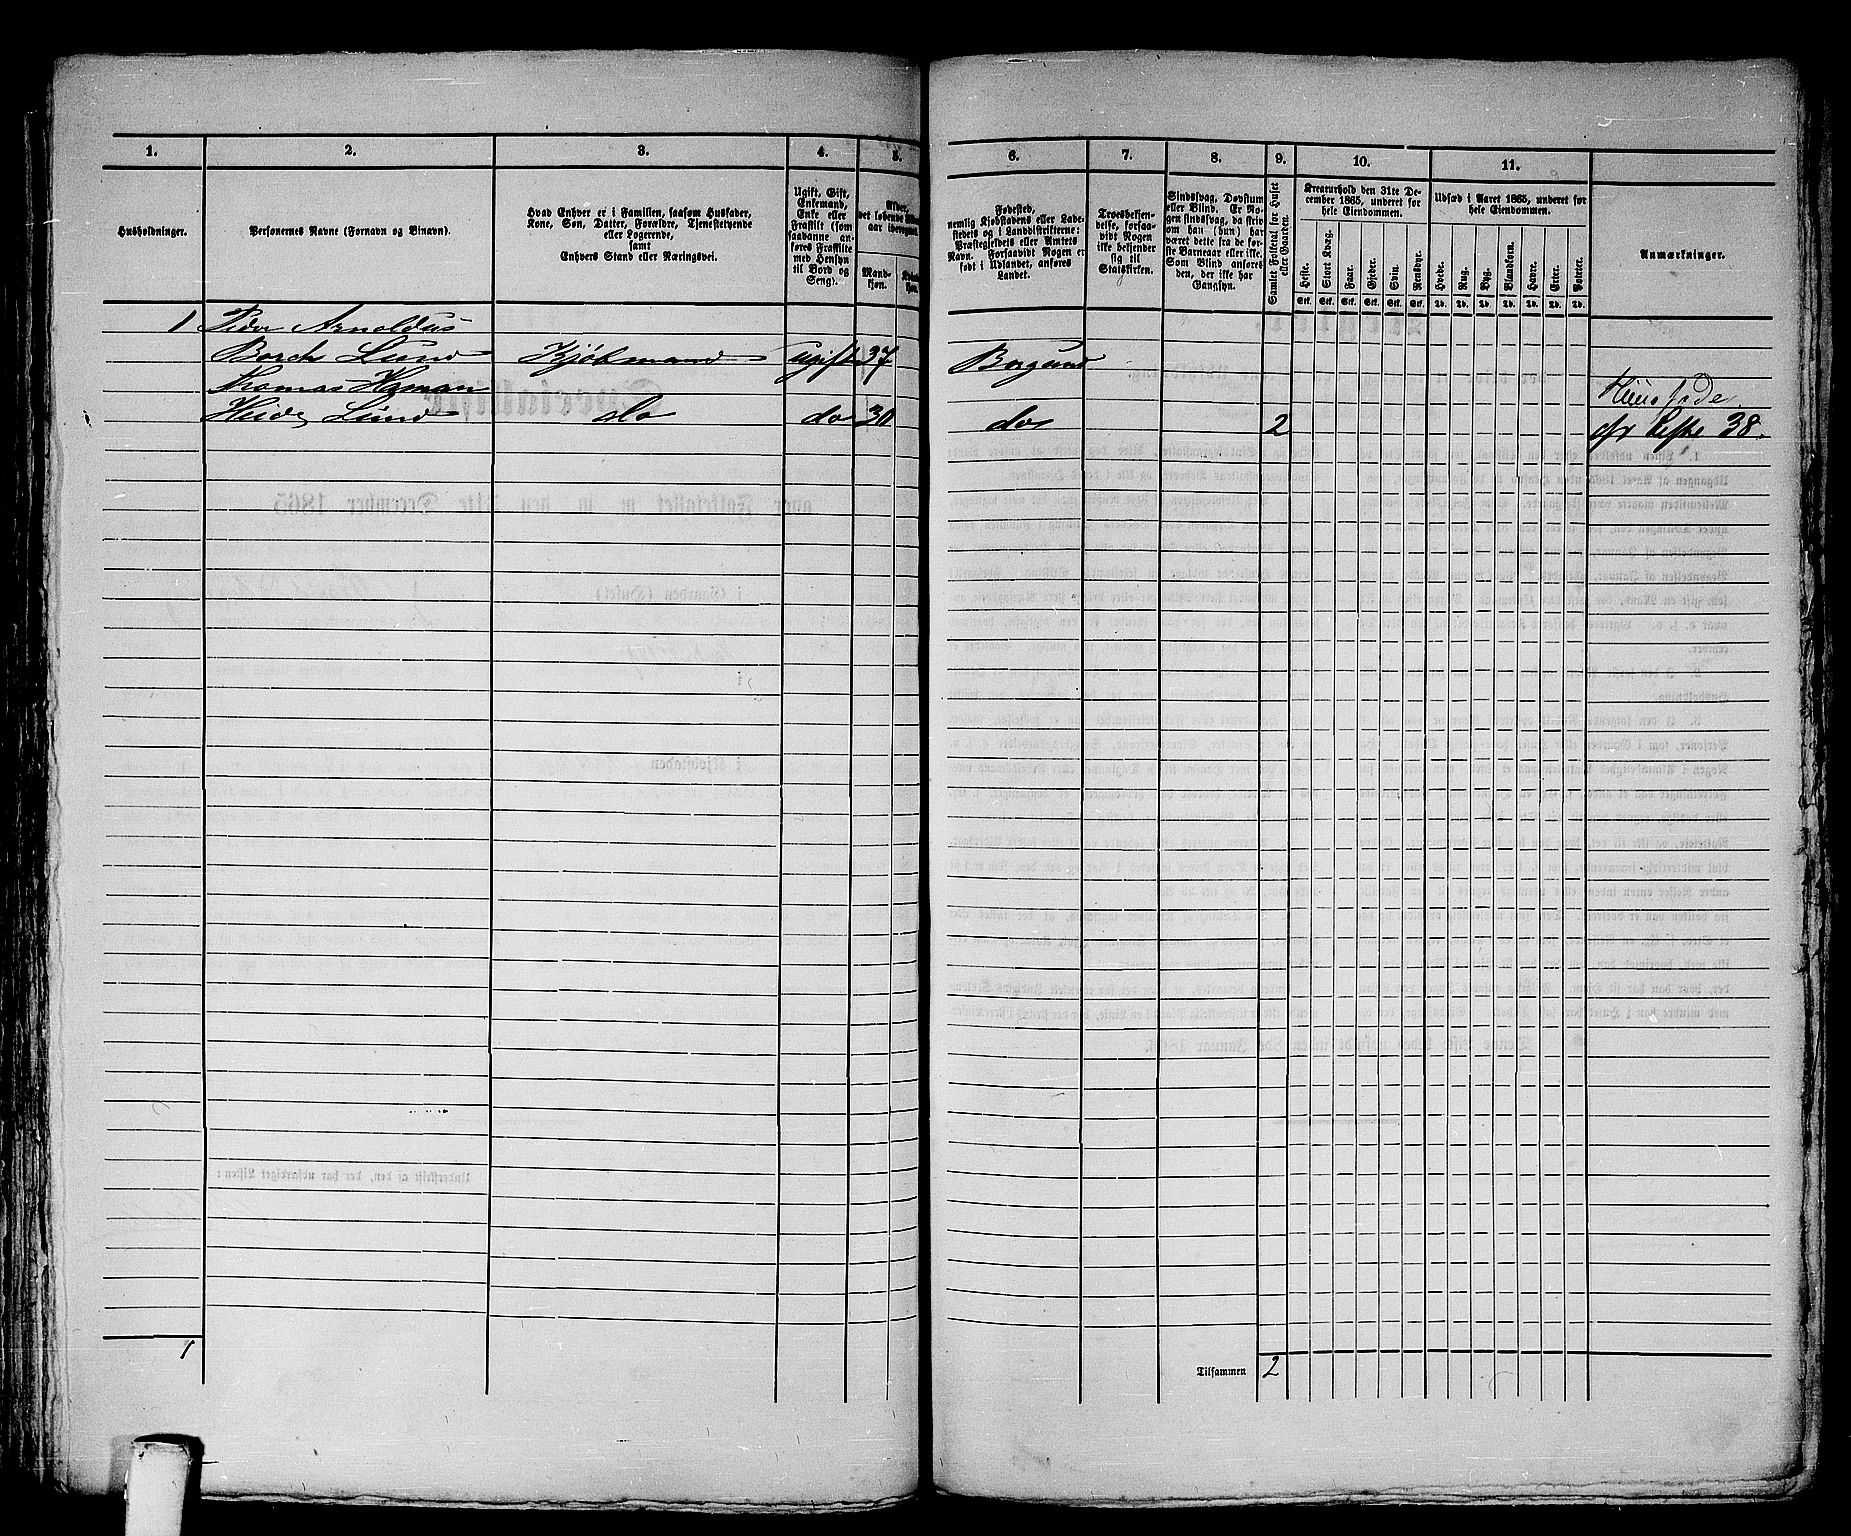 1. 2. 3. 4. 5. 6. 7. 8. 9. 10. 11.
Husholdninger.
Personernes Navne (Fornavn og Binavn).
Hvad Enhver er i Familien, saasom Husfader,
Kone, Søn, Datter, Forældre, Tjenestetyende
eller Logerende,
samt
Enhvers Stand eller Næringsvei.
Ugift, Gift,
Enkemand,
Enke eller
Fraskilt (som
saadanne an-
føres Fraskilte
med Hensyn
til Bord og
Seng).
Alder,
det løbende Alders-
aar iberegnet.
Mand-
kjøn.
Kvinde-
kjøn.
Fødested,
nemlig Kjøbstadens eller Lade-
stedets og i Landdistrikterne:
Præstegjeldets eller Amtets
Navn. Forsaavidt Nogen er
født i Udlandet, anføres
Landet.
Troesbekjen-
delse, forsaa-
vidt Nogen
ikke bekjender
sig til
Statskirken.
Sindssvag, Døvstum
eller Blind. Er No-
gen sindssvag, da skriv
om han (hun) har
været dette fra de før-
ste Barneaar eller ikke.
Som Blind anføres
den, der ikke har
Gangsyn.
Samlet Folketal for Huset
eller Gaarden.
Kreaturhold den 31te De-
cember 1865, underet for
hele Eiendommen.
Heste. Stort Kvæg. Faar. Gjeder. Svin. Rensdyr.
Stk. Stk. Stk. Stk. Stk. Stk.
Udsæd i Aaret 1865, underet for
hele Eiendommen.
Hvede. Rug. Byg. Blandkorn. Havre. Erter. Poteter.
Td. Td. Td. Td. Td. Td. Td.
Anmærkninger.
1 Peder Arnoldus
Borch Lund Kjøbmand ugift 37 Borgund
Thomas Haman
Heide Lund do do 30 do 2
cfr Liste 38.
1
Tilsammen 2